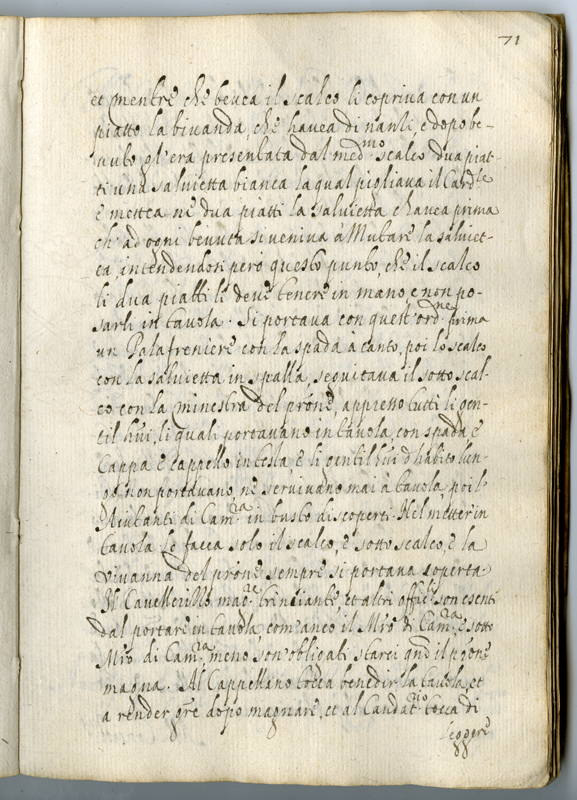 71
et mentre che beuea il scalco li copriua con un
piatto la biuanda, che hauea di nanti, e dopo be-
uuto gl'era presentata dal med.mo scalco dua piat-
ti una saluietta bianca la qual pigliaua il Card.le
e mettea ne dua piatti la saluietta c'hauea prima
ch'ad ogni beuuta si ueniua à Mutare la saluiet-
ta, intendendosi però questo punto, che il scalco
li dua piatti li deue tenere in mano, e non po-
sarli in tauola. Si portaua con quest'ord.ne prima
un Palafreniere con la spada à canto, poi lo scalco
con la saluietta in spalla, seguitaua il sotto scal-
co con la minestra del prõne, appresso tutti li gen-
til hũi, li quali portauano in tauola, con spada e
Cappa e cappello in testa, e li gentil hũi d'habito lun-
go, non portauano, ne seruiuano mai à tauola, poi l'
Aiutanti di Cam.ra in busto discoperti. Nel metter in
tauola lo facea solo il scalco, e sotto scalco, e la
viuanna del prõne sempre si portaua coperta.
Il Cauallerizzo mag.re trinciante, et altri offic.li son esenti
dal portare in tauola, com'anco il Mro di Cam.ra, e sotto
Mro di Cam.ra, meno son'obligati starci qñdo il prõne
magna. Al Cappellano tocca benedir la tauola, et
a render grẽ dopo magnare, et al Caudat.rio tocca di
leggere